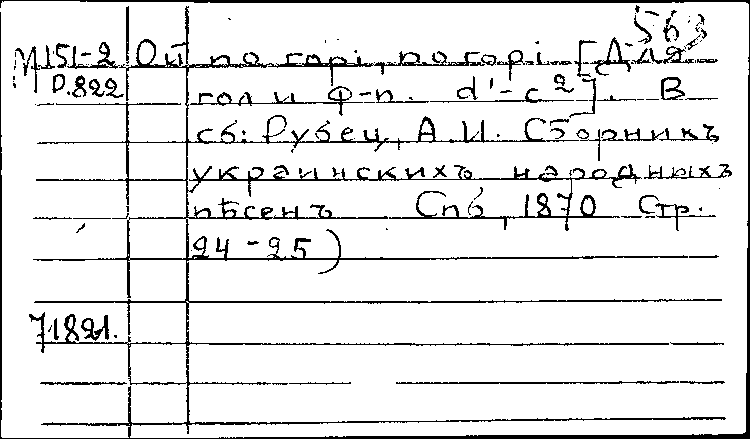 563
М151-2 Ой по горі, по горі [Для
Р.822 гол и ф-п. d'-c²]. В
сб: Рубец, А.И. Сборникъ
украинскихъ народныхъ
пѣсенъ Спб, 1870 Стр.
24-25)
71821.